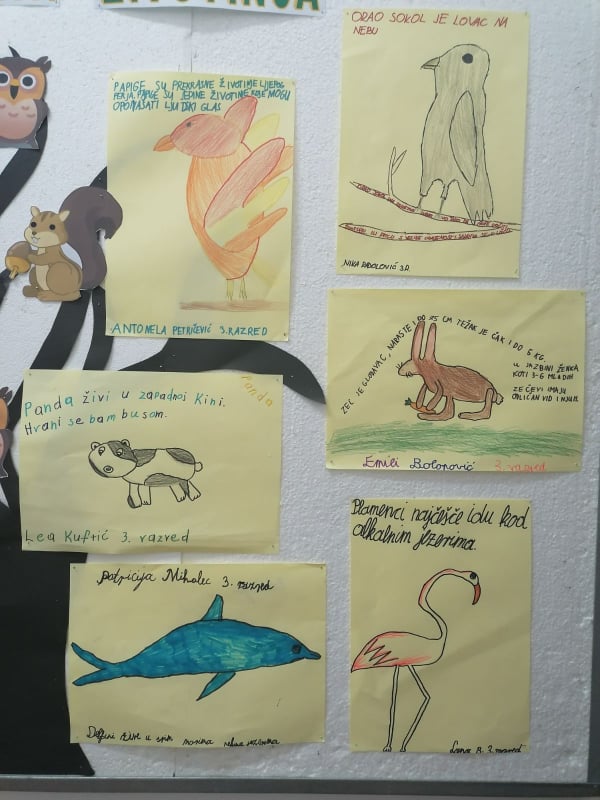 PAPIGE SU PREKRASNE ŽIVOTINJE LIJEPOG
PERJA. PAPIGE SU JEDINE ŽIVOTINJE KOJE MOGU
OPONAŠATI LJUDSKI GLAS
ANTONELA PETRIČEVIĆ 3. RAZRED
ORAO SOKOL JE LOVAC NA
NEBU
NIKA RADOLOVIĆ 3.R.
ZEC JE GLODAVAC, NARASTE I DO 75 CM TEŽAK JE ČAK I DO 5 KG.
U JAZBINI ŽENKA
KOTI 3-6 MLADIH
ZEČEVI IMAJU
ODLIČAN VID I NJUH.
Emili Bolonović 3. razred
Panda
Panda živi u zapadnoj Kini.
Hrani se bambusom.
Lea Kuftić 3. razred
Patricija Mihalec 3. razred
Dupini žive u svim morima
Plamenci najčešće idu kod
alkalnim jezerima.
Lana B. 3. razred